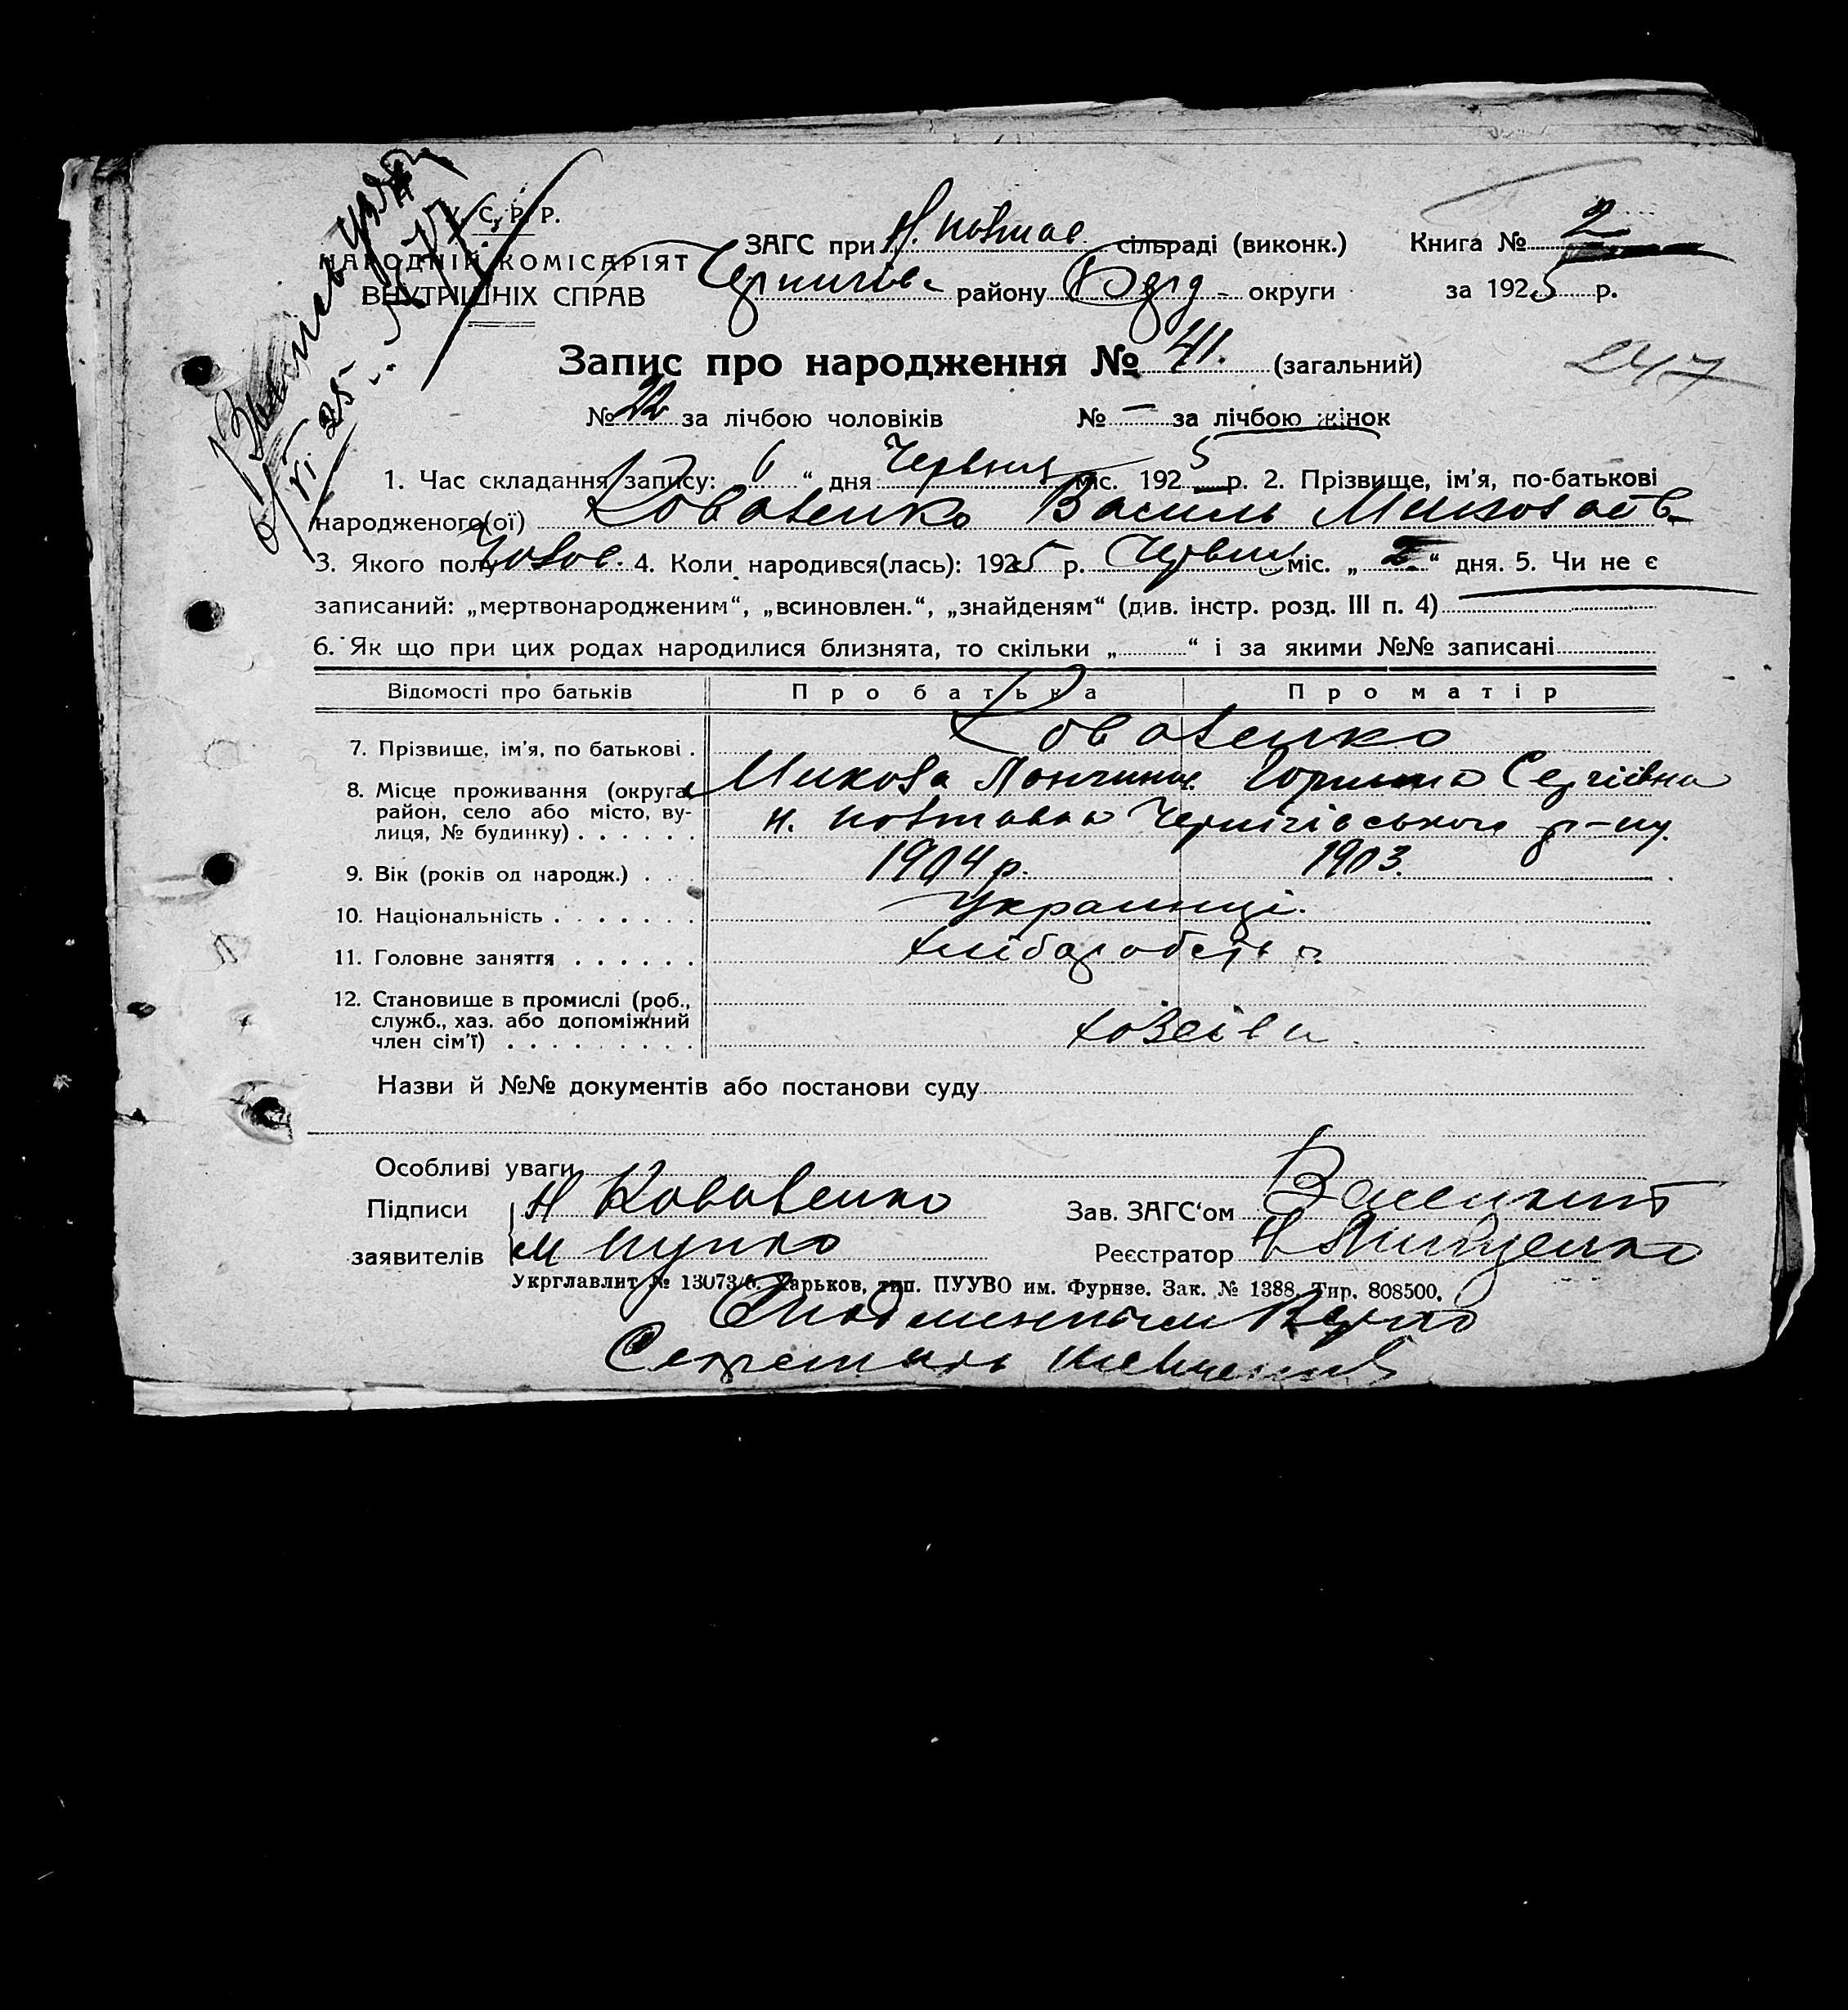 У. С. Р. Р.
НАРОДНІЙ КОМІСАРІЯТ
ВНУТРІШНІХ СПРАВ
ЗАГС при Н. Полтав. сільраді (виконк.) Книга № 2
Чернигів- району Берд- округи за 1925 р.
Запис про народження № 41. (загальний)
247
№ 22 за лічбою чоловіків № — за лічбою жінок
1. Час складання запису: 6 “ дня Червня міс. 1925 р. 2. Прізвище, ім’я, по-батькові
народженого(ої) Коваленко Василь Миколаєв-
3. Якого полу Чолов. 4. Коли народився(лась): 1925 р. Червня міс. „ 2 “ дня. 5. Чи не є
записаний: „мертвонародженим“, „всиновлен.“, „знайденям“ (див. інстр. розд. III п. 4)
6. Як що при цих родах народилися близнята, то скільки „ “ і за якими №№ записані
Відомості про батьків Про батька Про матір
7. Прізвище, ім’я, по батькові . Коваленко
8. Місце проживання (округа, Микола Сергіївна
район, село або місто, ву-
лиця, № будинку) . . . . . . Н. Полтавка Чернігівського р-ну.
9. Вік (років од народж.) . . . 1904 р. 1903.
10. Національність . . . . . . . Украинці.
11. Головне заняття . . . . . .
12. Становище в промислі (роб.,
служб., хаз. або допоміжний
член сім’ї) . . . . . . . . .
Назви й №№ документів або постанови суду
Особливі уваги
Підписи Н Коваленко Зав. ЗАГС‘ом
заявителів М Реєстратор
Укрглавлит № 13073/б. Харьков, тип. ПУУВО им. Фурнзе. Зак. № 1388. Тир. 808500.
Секретарь